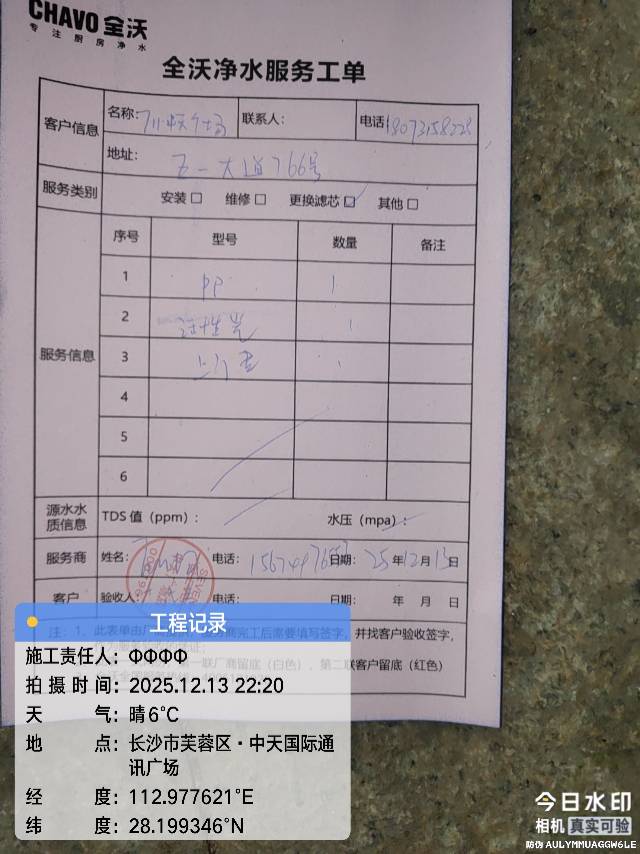 CHAVO 全沃
专注厨房净水
全沃净水服务工单
客户信息 名称: 联系人: 电话: 18073158228
地址: 五一大道766号
服务类别 安装☐ 维修☐ 更换滤芯☑ 其他☐
服务信息 序号 型号 数量 备注
1 PP 1
2 活性炭 1
3
4
5
6
源水水质信息 TDS 值（ppm）: 水压（mpa）:
服务商 姓名: 电话: 日期: 25年12月13日
客户 验收人: 年 月 日
注：1、此表单由 商完工后需要填写签字，并找客户验收签字，
第一联厂商留底（白色）、第二联客户留底（红色）
工程记录
施工责任人: ФФФФ
拍摄时间: 2025.12.13 22:20
天气: 晴 6°C
地点: 长沙市芙蓉区·中天国际通
讯广场
经度: 112.977621°E
纬度: 28.199346°N
今日水印
相机 真实可验
防伪 AULYMMUAGGW6LE